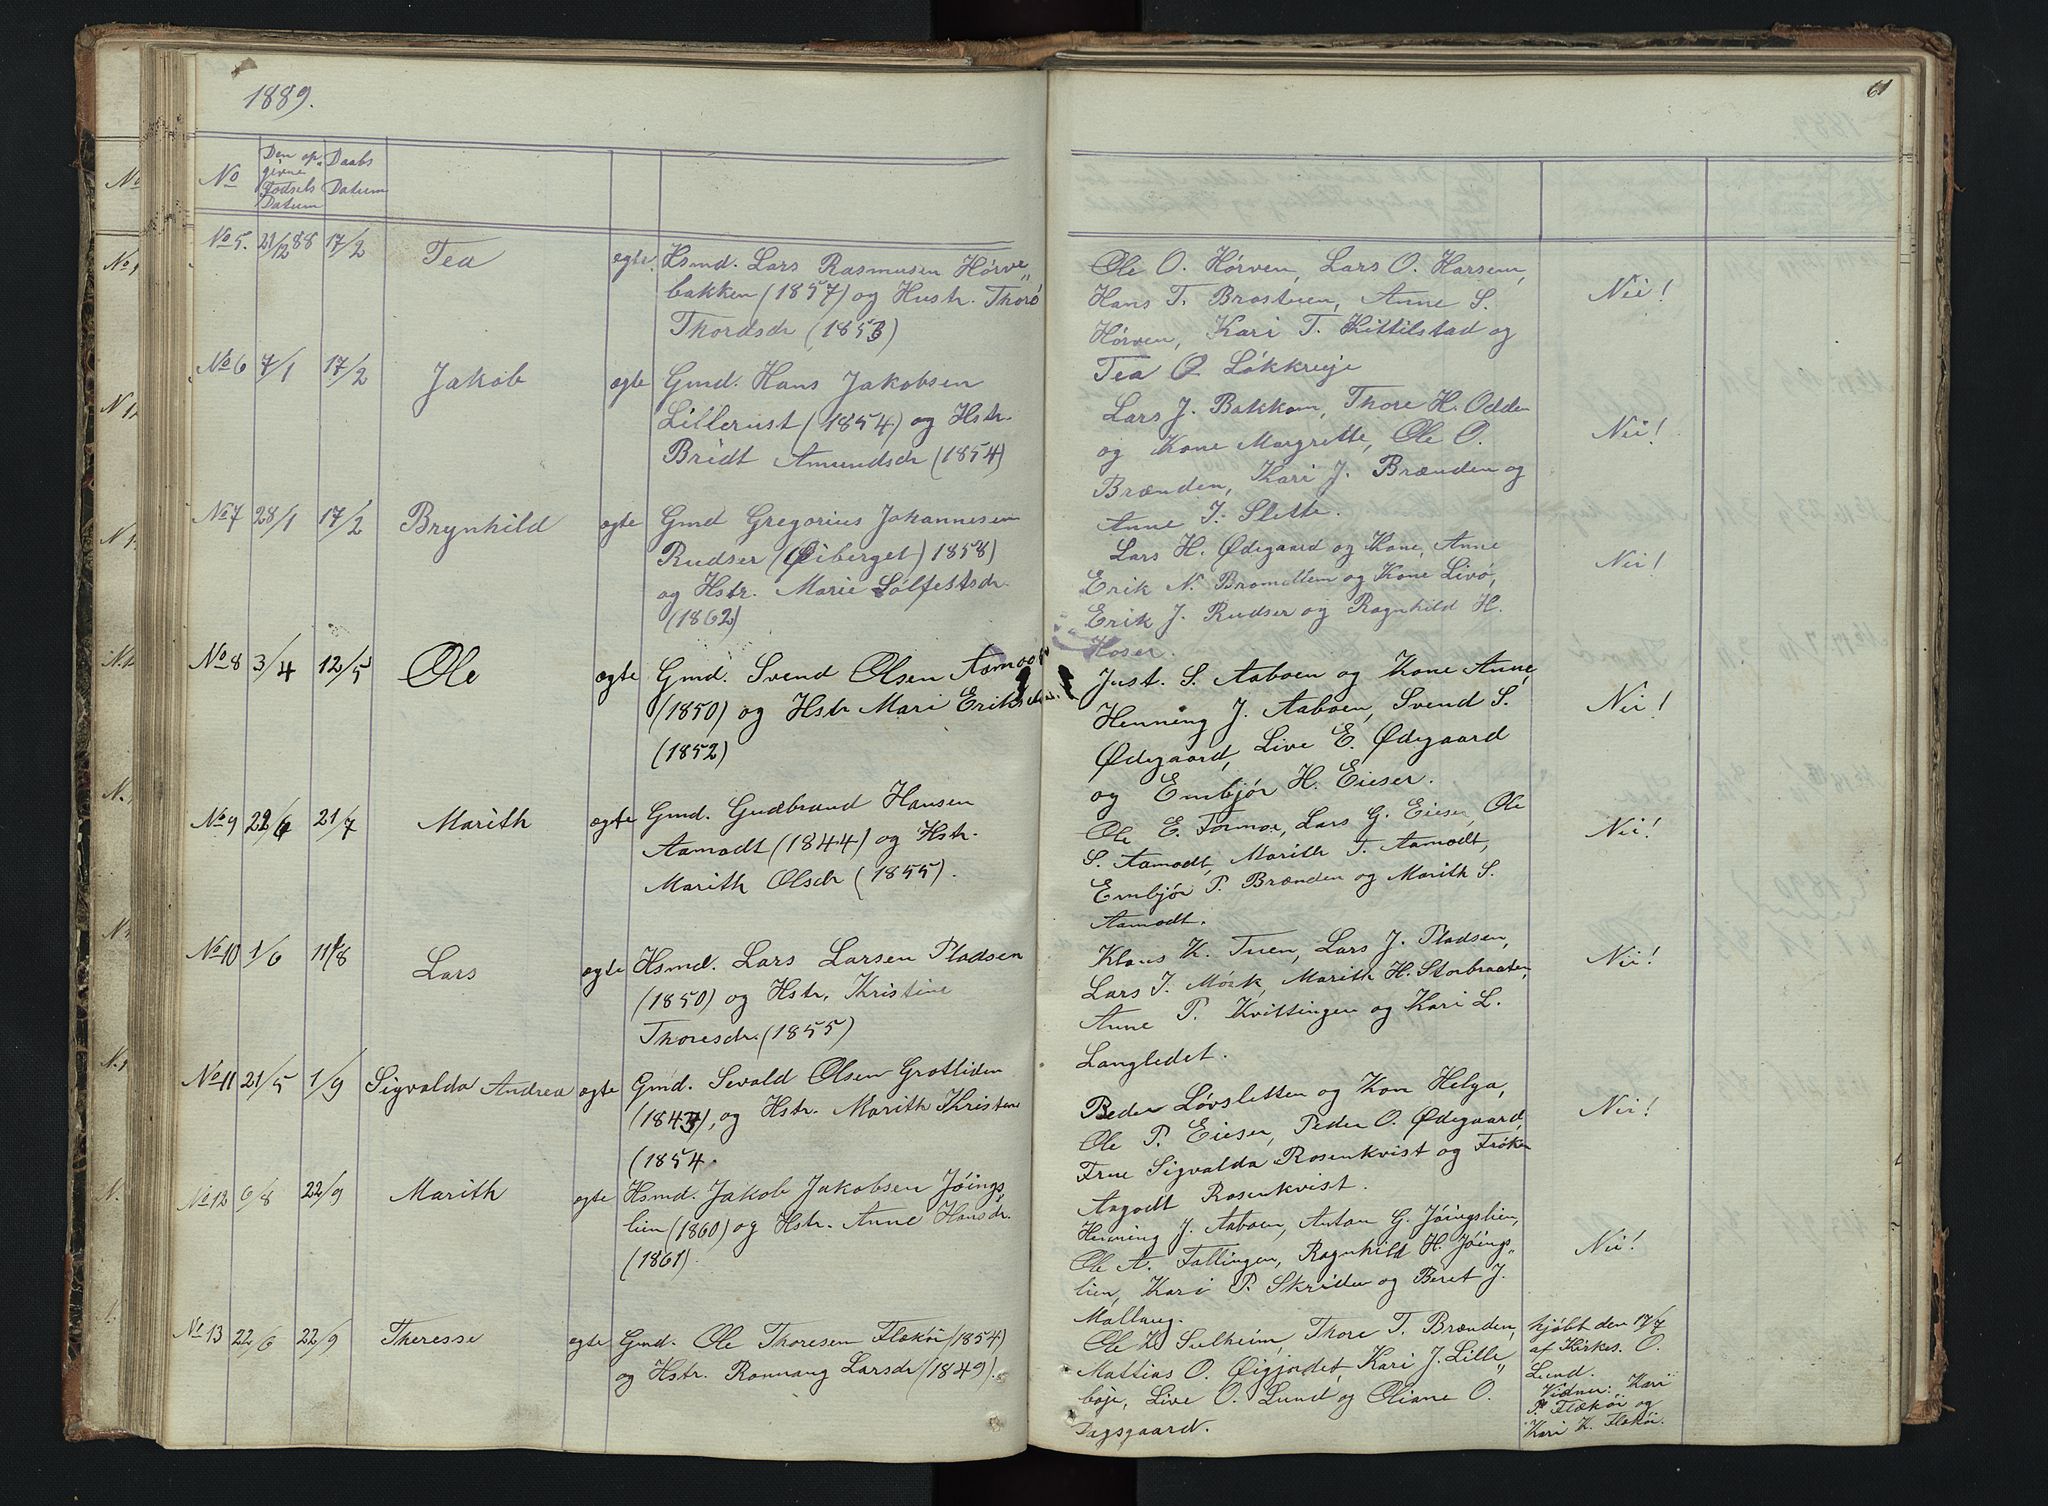 1889.
61
No
Den op-
givne
Fødsels
Datum
Daabs
Datum
No 5. 21/12 88 17/2 Tea ægte. Hsmd. Lars Rasmusen Hørve„
bakken (1857) og Hustr. Thorø
Thordsdr (1853)
Ole O. Hørven, Lars O. Harsem,
Hans T. Brostuen, Anne S.
Hørven, Kari T. Kittilstad og
Tea O. Løkkreije
Nei!
No 6 7/1 17/2 Jakob ægte Gmd. Hans Jakobsen
Lillerust (1854) og Hstr.
Bridt Amundsdr (1854)
Lars J. Bakkom, Thore H. Odden
og Kone Margrette, Ole O.
Brænden, Kari J. Brænden og
Anne I. Slette.
Nei!
No 7 28/1 17/2 Brynhild ægte Gmd Gregorius Johannesen
Rudser (Øiberget) 1858)
og Hstr. Marie Sølfestsdr.
(1862)
Lars H. Ødegaard og Kone, Anne
Erik N. Bromillem og Kone Livø,
Erik J. Rudser og Ragnhild H.
Hoser.
Nei!
No 8 3/4 12/5 Ole ægte Gmd. Svend Olsen Aamodt
(1850) og Hstr Mari Eriksdr.
(1852)
Just. S. Aaboen og Kone Anne,
Henning J. Aaboen, Svend S.
Ødegaard, Live E. Ødegaard
og Embjør H. Eieser.
Nei!
No 9 22/6 21/7 Marith ægte Gmd. Gudbrand Hansen
Aamodt (1844) og Hstr.
Marith Olsdr (1855).
Ole E. Formoe, Lars G. Eieser, Ole
S. Aamodt, Marith T. Aamodt,
Embjør P. Brænden og Marith S.
Aamodt.
Nei!
No 10 1/6 11/8 Lars ægte Hsmd. Lars Larsen Pladsen
(1850) og Hstr. Kristine
Thoresdr. (1855)
Klaus K. Tuen, Lars J. Pladsen,
Lars I. Mørk, Marith H. Storbraaten,
Anne P. Kvittingen og Kari L.
Langledet.
Nei!
No 11 21/5 1/9 Sigvalda Andrea ægte Gmd. Sevald Olsen Grotliden
(1843), og Hstr. Marith Kristens
(1854.
Peder Løvsletten og Kon Helga,
Ole P. Eieser, Peder O. Ødegaard,
Frue Sigvalda Rosenkvist og Frøken
Aagodt Rosenkvist.
Nei!
No 12 6/8 22/9 Marith ægte Hsmd. Jakob Jakobsen Jøings„
lien (1860) og Hstr. Anne Hansdr.
(1861).
Henning J. Aaboen, Anton G. Jøingslien,
Ole A. Fallingen, Ragnhild H. Jøings„
lien, Kari P. Skriden og Beret J.
Mallung.
Nei!
No 13 22/6 22/9 Theresse ægte Gmd. Ole Thoresen Flækøi (1854)
og Hstr. Ronnaug Larsdr (1849).
Ole K. Sulheim, Thore T. Brænden,
Mattias O. Øigjordet, Kari J. Lille„
bøje, Live O. Lund og Oliane O.
Dagsgaard.
hjdbt den 17/7
af Kirkes. O.
Lund.
Vidner: Kari
P. Flækøi og
Kari K. Flækøi.